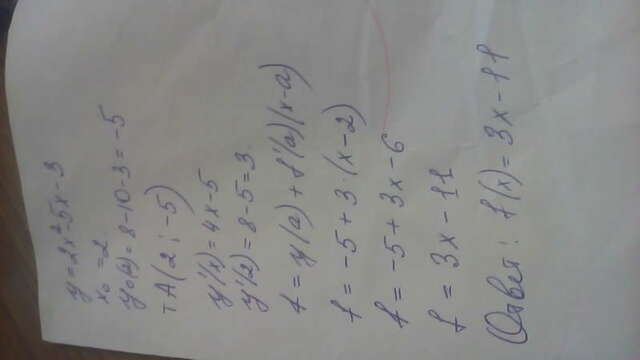 y = 2x² - 5x - 3
x₀ = 2
y₀(2) = 8 - 10 - 3 = -5
т A (2 ; -5)
y'(x) = 4x - 5
y'(2) = 8 - 5 = 3
f = y(a) + f'(a)(x-a)
f = -5 + 3 · (x - 2)
f = -5 + 3x - 6
f = 3x - 11
Ответ: f(x) = 3x - 11